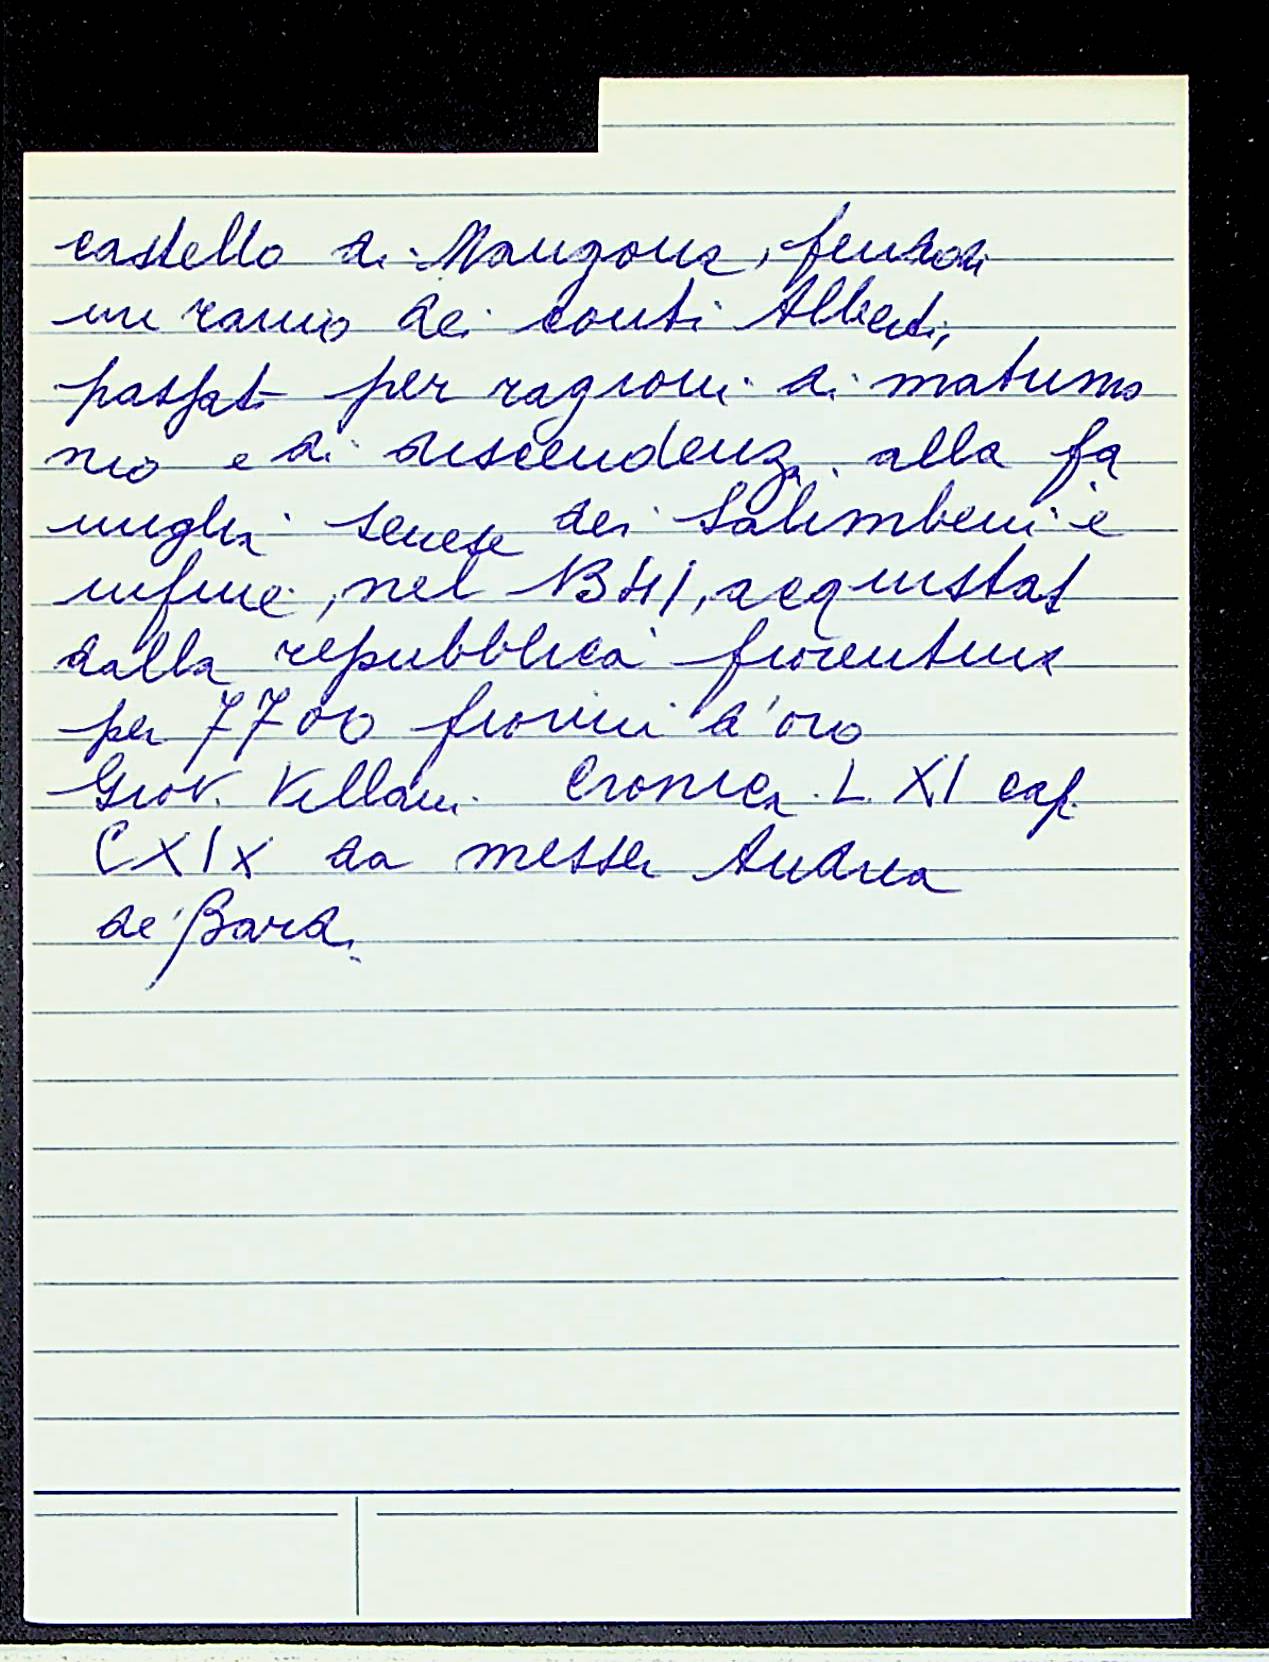 castello di Mangona, feudo di
un ramo dei conti Alberti,
passato per ragioni di matrimo
nio e di discendenza alla fa
miglia senese dei Salimbeni e
infine, nel 1341, acquistat
dalla repubblica fiorentina
per 7700 fiorini d'oro
Giov. Villani. Cronica. L. XI cap.
CXIX da messer Andrea
de' Bardi.